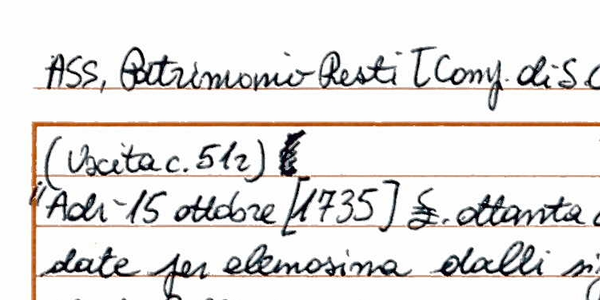 ASS, Patrimonio Resti [Comp. di S.
(Uscita c. 512)
"Adì 15 ottobre [1735] £. ottanta
date per elemosina dalli